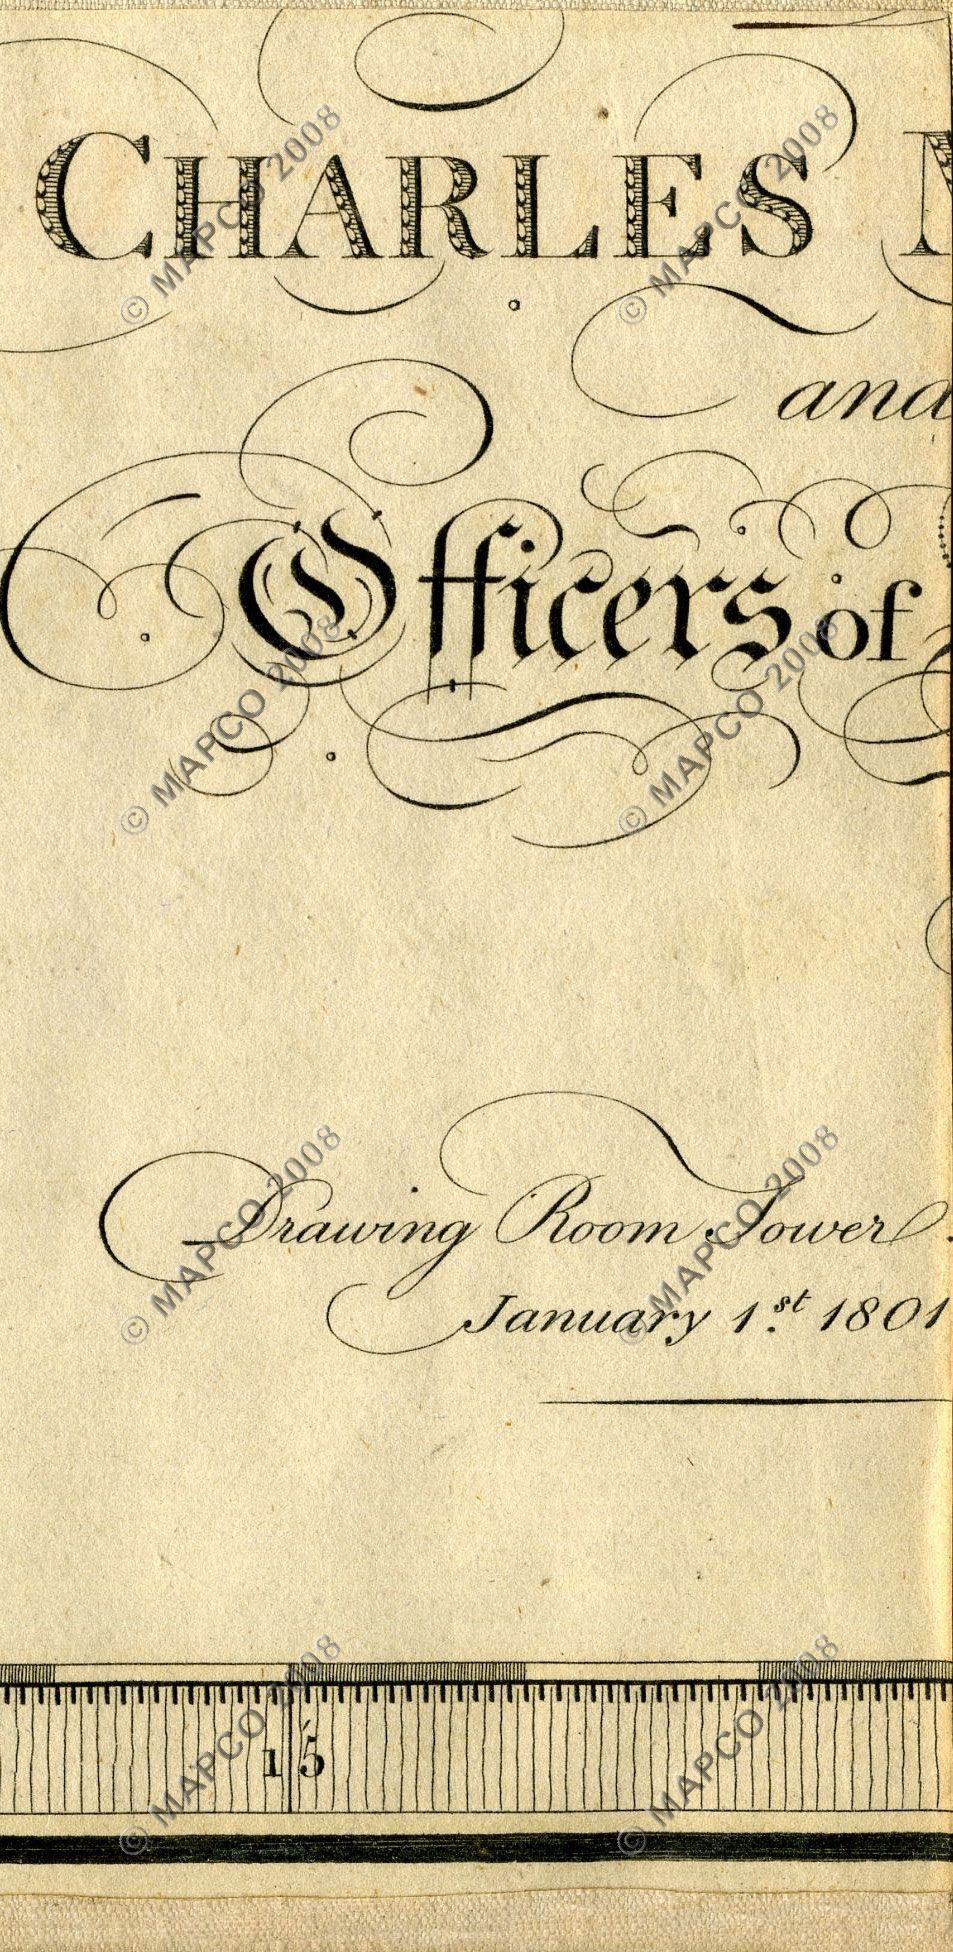 CHARLES
and
Officers of
Drawing Room Tower.
January 1st 1801
15
© MAPCO 2008
© MAPCO 2008
© MAPCO 2008
© MAPCO 2008
© MAPCO 2008
© MAPCO 2008
© MAPCO 2008
© MAPCO 2008